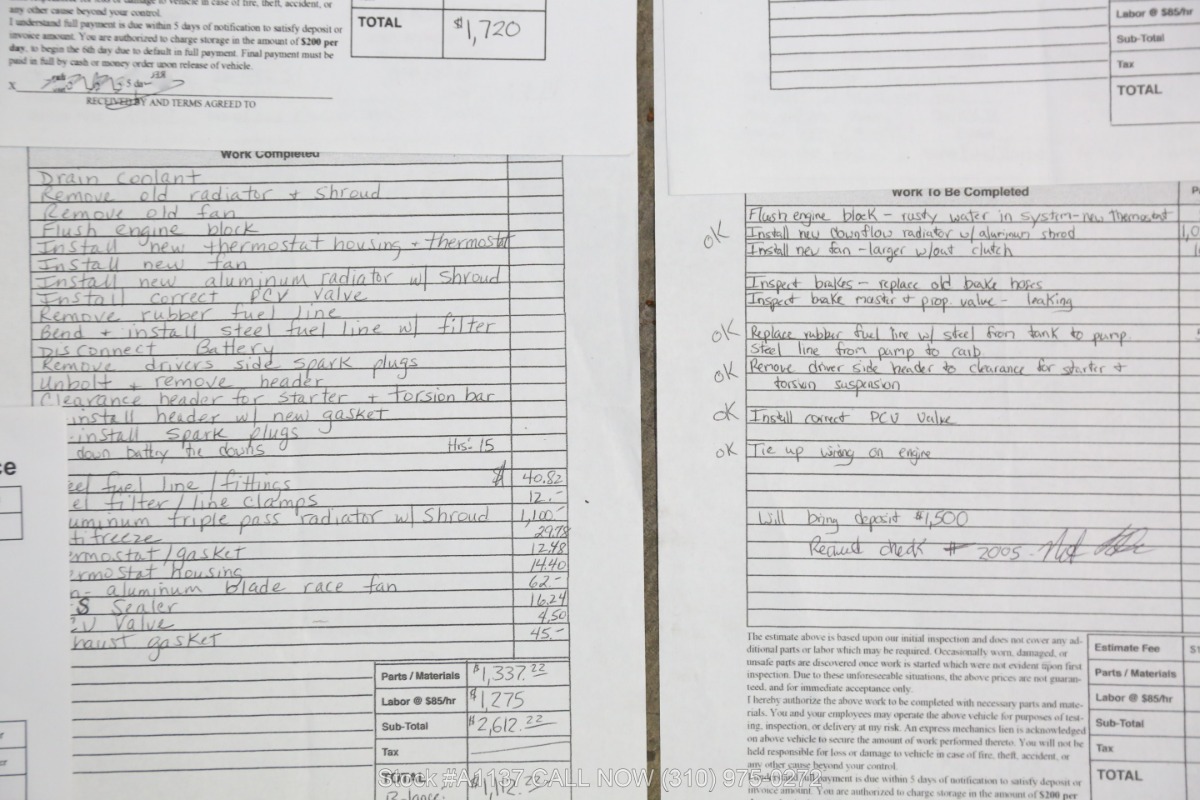 any other cause beyond your control.
I understand full payment is due within 5 days of notification to satisfy deposit or
invoice amount. You are authorized to charge storage in the amount of $200 per
day, to begin the 6th day due to default in full payment. Final payment must be
paid in full by cash or money order upon release of vehicle.
X
RECEIVED BY AND TERMS AGREED TO
TOTAL $1,720
Work Completed
Drain coolant
Remove old radiator + shroud
Remove old fan
Flush engine block
Install new thermostat housing + thermostat
Install new fan
Install new aluminum radiator w/ shroud
Install correct PCV valve
Remove rubber fuel line
Bend + install steel fuel line w/ filter
Disconnect Battery
Remove drivers side spark plugs
Unbolt + remove header
Clearance header for starter + torsion bar
install header w/ new gasket
install spark plugs
down battry tie downs Hrs: 15
eel fuel line / fittings $ 40.82
el filter / line clamps 12.-
uminum triple pass radiator w/ shroud 1,100-
tifreeze 29.78
ermostat/gasket 12.48
ermostat housing 14.40
n- aluminum blade race fan 62.-
S Sealer 16.24
CV Valve 4.50
haust gasket 45.-
Parts / Materials $1,337.22
Labor @ $85/hr $1,275
Sub-Total $2,612.22
Tax
TOTAL $1,112.22
Balance:
ce
Labor @ $85/hr
Sub-Total
Tax
TOTAL
Work To Be Completed
Flush engine block - rusty water in system - new thermostat
OK Install new downflow radiator w/ aluminum shrod 1,0
Install new fan - larger w/out clutch
Inspect brakes - replace old brake hoses
Inspect brake master + prop. valve - leaking
OK Replace rubber fuel line w/ steel from tank to pump.
Steel line from pump to carb
OK Remove driver side header to clearance for starter +
torsion suspension
OK Install correct PCV Valve
OK Tie up wiring on engine
Will bring deposit $1,500
Recieved check # 2005
The estimate above is based upon our initial inspection and does not cover any ad-
ditional parts or labor which may be required. Occasionally worn, damaged, or
unsafe parts are discovered once work is started which were not evident upon first
inspection. Due to these unforeseeable situations, the above prices are not guaran-
teed, and for immediate acceptance only.
I hereby authorize the above work to be completed with necessary parts and mate-
rials. You and your employees may operate the above vehicle for purposes of test-
ing, inspection, or delivery at my risk. An express mechanics lien is acknowledged
on above vehicle to secure the amount of work performed thereto. You will not be
held responsible for loss or damage to vehicle in case of fire, theft, accident, or
any other cause beyond your control.
payment is due within 5 days of notification to satisfy deposit or
invoice amount. You are authorized to charge storage in the amount of $200 per
Estimate Fee
Parts / Materials
Labor @ $85/hr
Sub-Total
Tax
TOTAL
Stock #A1137 CALL NOW (310) 975-0272